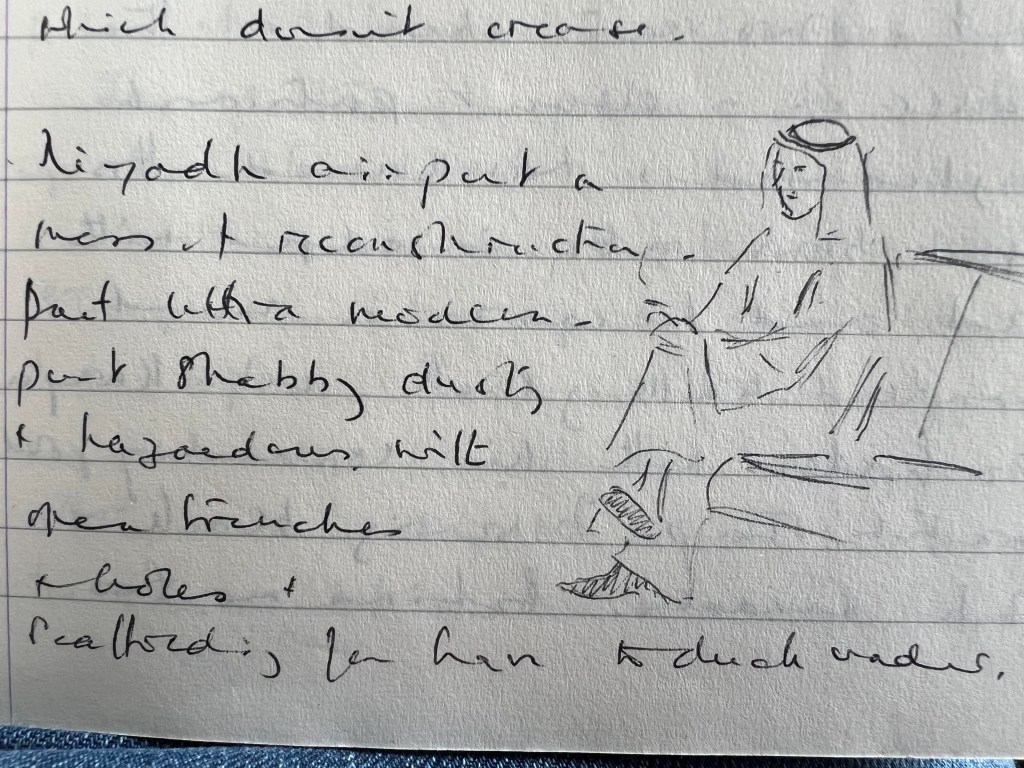 which doesn't crease.
Riyadh airport a
mess of reconstruction.
Part ultra modern -
part shabby dusty
+ hazardous with
open trenches
+ holes +
scaffolding you have to duck under.